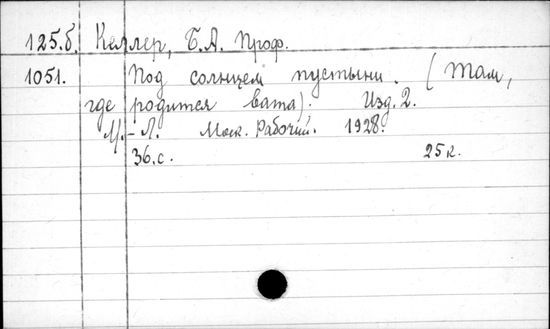 125.б. Келлер, Б.А. Проф.
1051. Под солнцем пустыни. (Там,
где родится вата). Изд. 2.
М.-Л. Моск. Рабочий. 1928.
36.с. 25к.